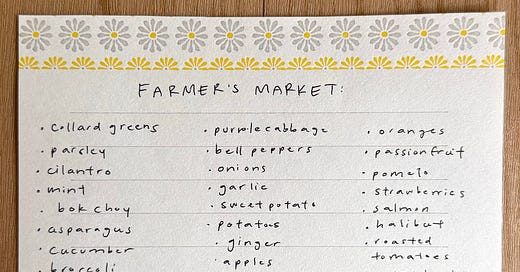 FARMER'S MARKET:
· collard greens
· parsley
· cilantro
· mint
· bok choy
· asparagus
· cucumber
broccoli
· purple cabbage
· bell peppers
· onions
· garlic
· sweet potato
· potatoes
· ginger
· apples
· oranges
· passionfruit
· pomelo
· strawberries
· salmon
· halibut
· roasted
tomatoes